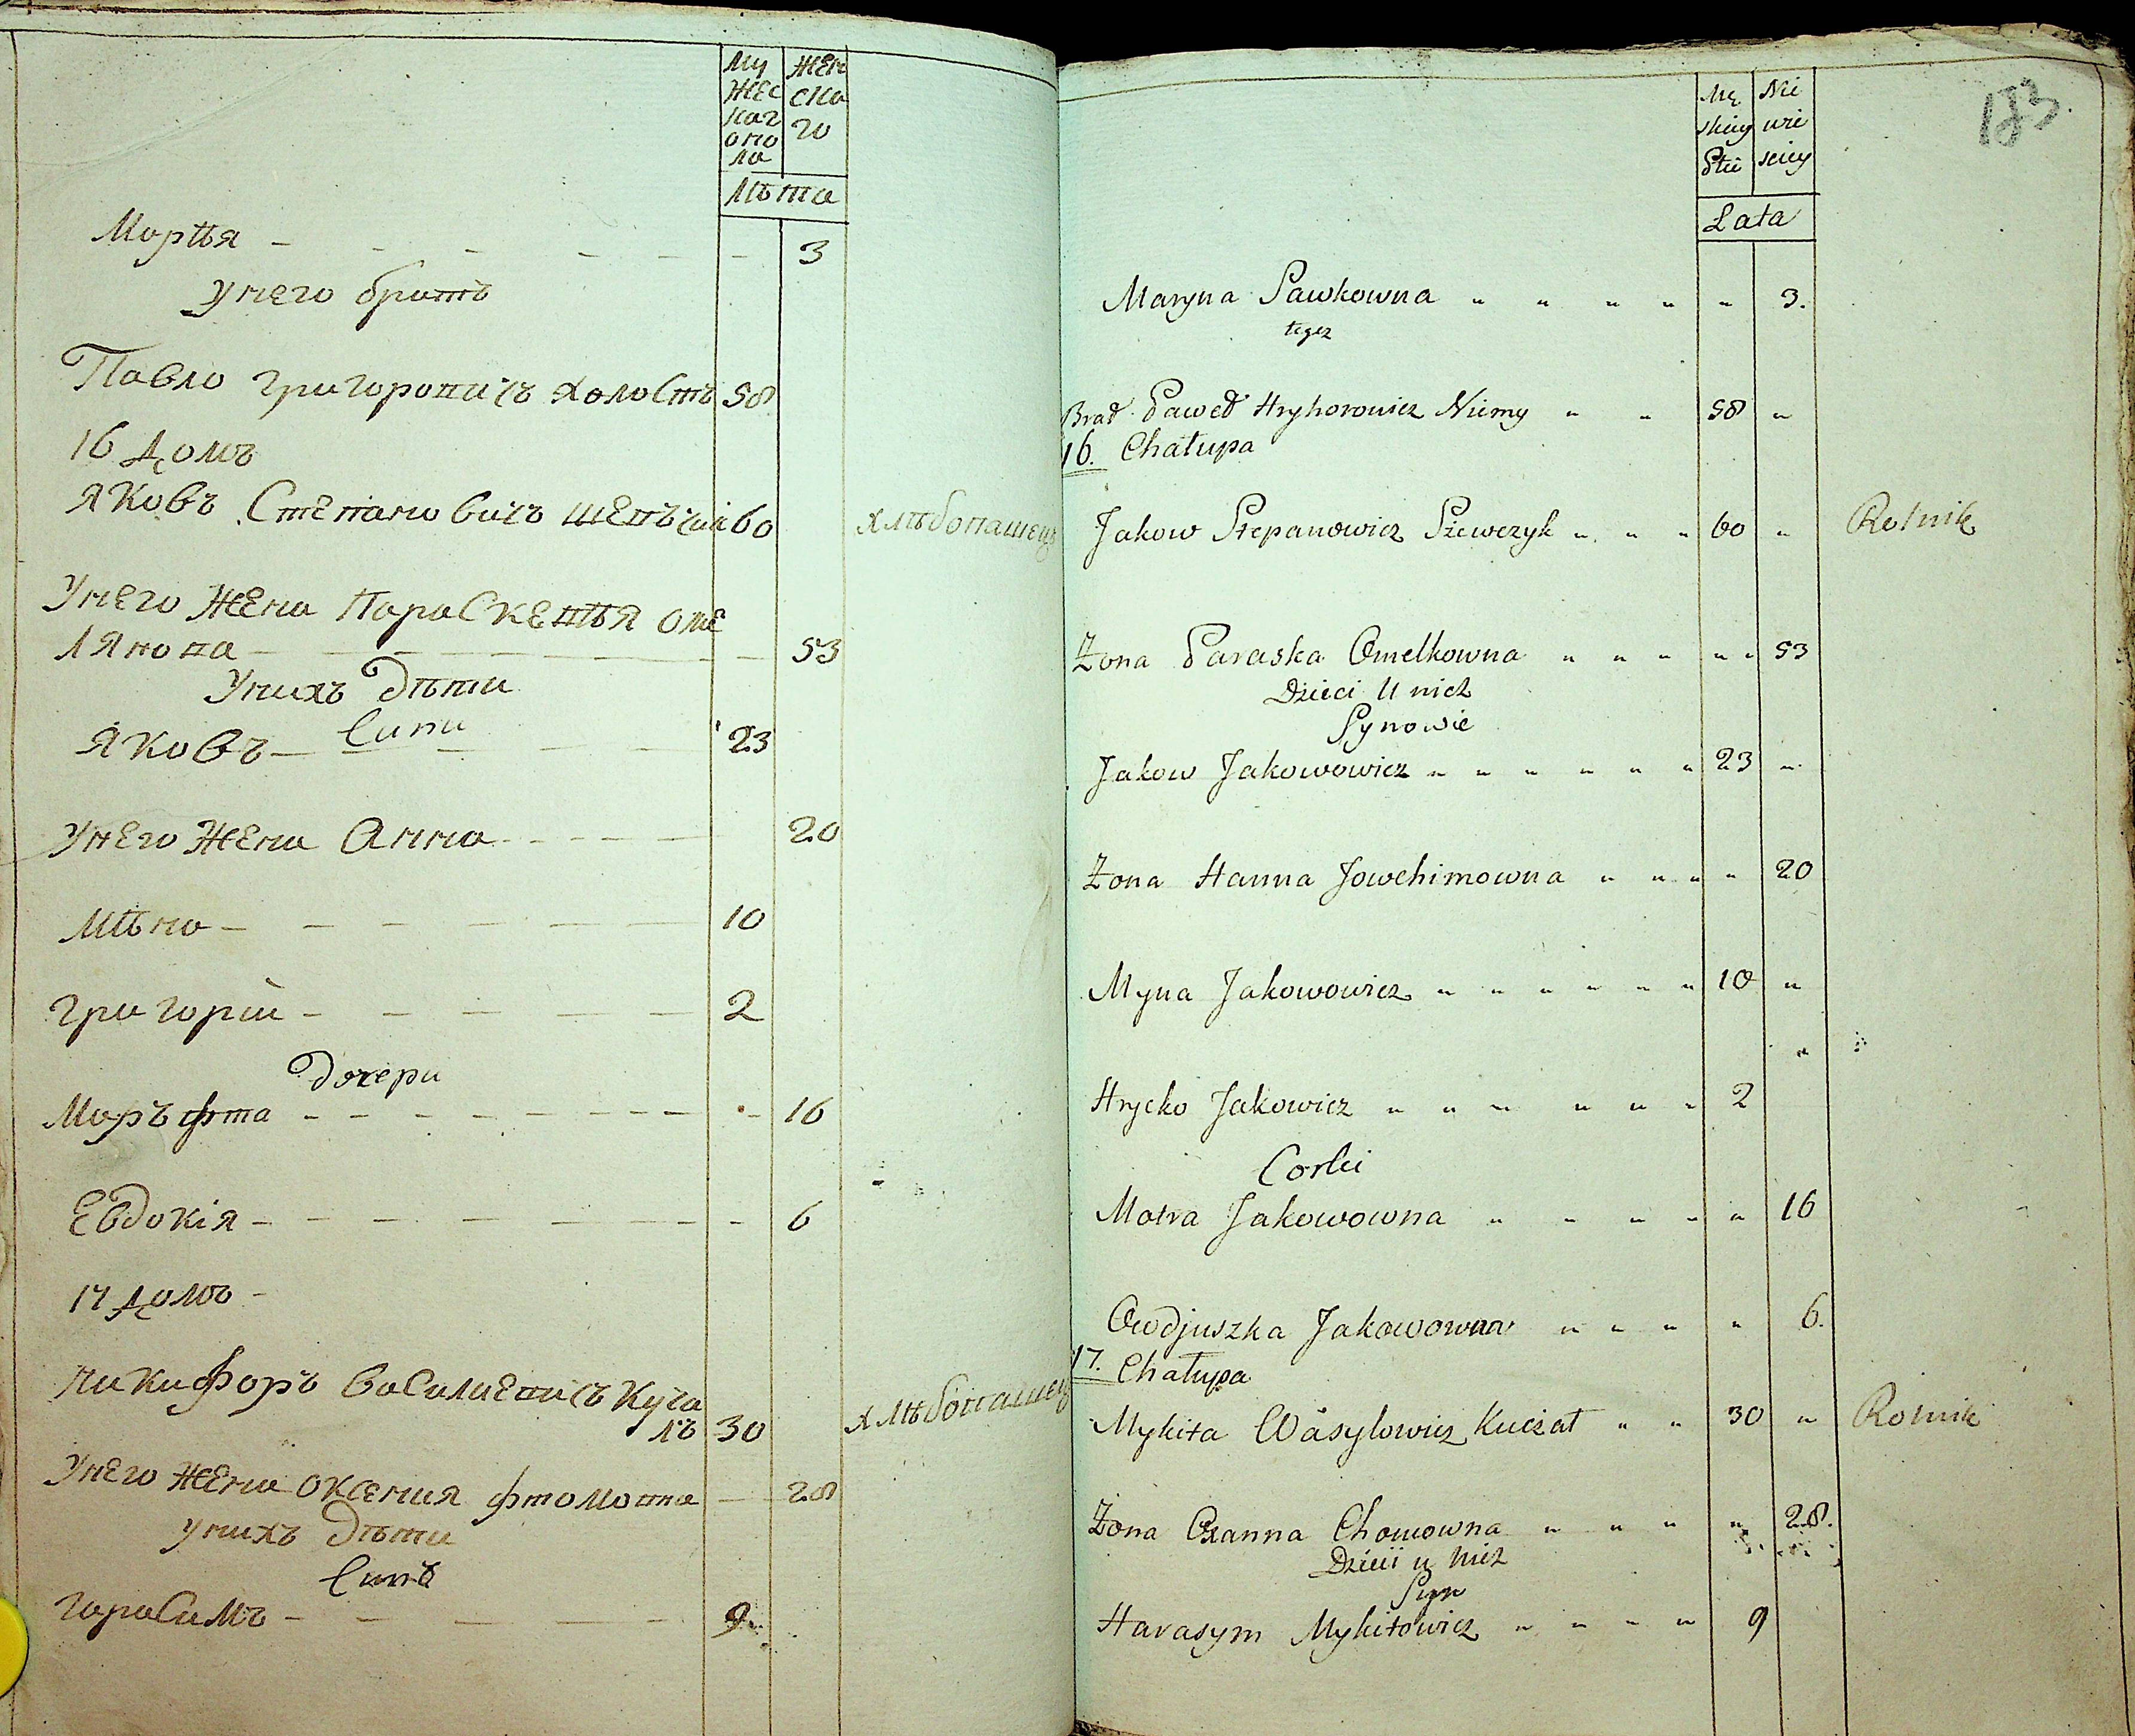 Му жес каг о по ла
Жен ска го
Лѣта
Марѣя — — — — — — 3
У него братъ
Павло Григоровичъ холостъ 58
16 домъ
Яковъ Степановичъ Шевъчик 60 хлѣбопашецъ
У него жена Параскевѣя Оме
лянова — — — — — — 53
У нихъ дѣти
Сини
Яковъ — — — — 23
У него жена Анна — — — — 20
Мѣна — — — — — — 10
Григорій — — — — — 2
Дочери
Маръфта — — — — — — — — — 16
Евдокія — — — — — — — — 6
17 домъ —
Никифоръ Василиевичъ Куча
лъ 30 хлѣбопашецъ
У него жена Оксения Фтомовна — 28
У нихъ дѣти
Синъ
Гарасимъ — — — — — 9
183
Mę skiey Płci
Nie wie sciey
Lata
Maryna Pawkowna „ „ „ „ „ „ 3.
tegez
Brat Paweł Hryhorowicz Niemy „ „ 58 „
16. Chałupa
Jakow Stepanowicz Szewczyk „ „ „ 60 „ Rolnik
Żona Paraska Omelkowna „ „ „ „ „ 53
Dzieci U nich
Synowie
Jakow Jakowowicz „ „ „ „ „ „ 23 „
Żona Hanna Jowchimowna „ „ „ „ 20
Myna Jakowowicz „ „ „ „ „ „ 10 „
Hrycko Jakowicz „ „ „ „ „ „ 2 „
Corki
Motra Jakowowna „ „ „ „ „ 16
Owdjuszka Jakowowna „ „ „ „ 6.
17. Chałupa
Mykita Wasylowicz Kuczał „ „ 30 „ Rolnik
Żona Oxanna Chomowna „ „ „ „ 28.
Dzieci u nich
Syn
Harasym Mykitowicz „ „ „ „ 9